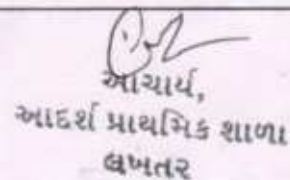 આચાર્ય,
આદર્શ પ્રાથમિક શાળા
લખતર